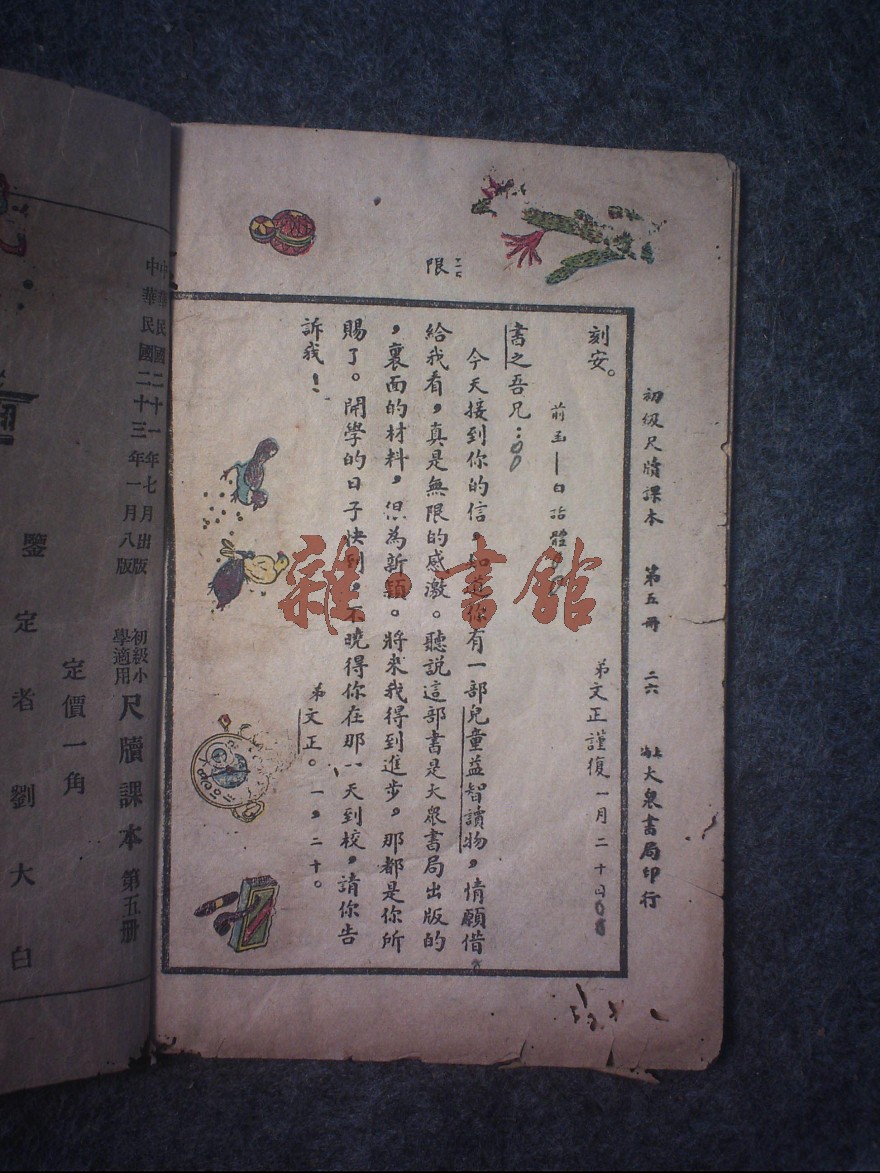 初級尺牘課本　第五冊　二六　上海大衆書局印行
刻安。
弟文正謹復一月二十日
前函—白話體
書之吾兄：
今天接到你的信，知道你有一部兒童益智讀物，情願借
給我看，真是無限的感激。聽說這部書是大衆書局出版的
，裏面的材料，很為新穎。將來我得到進步，那都是你所
賜了。開學的日子快到，不曉得你在那一天到校，請你告
訴我！
弟文正。一，二十。
限
雜·書館
中華民國二十一年七月出版
中華民國二十三年一月八版
初級小學適用尺牘課本第五冊
定價一角
鑒定者劉大白